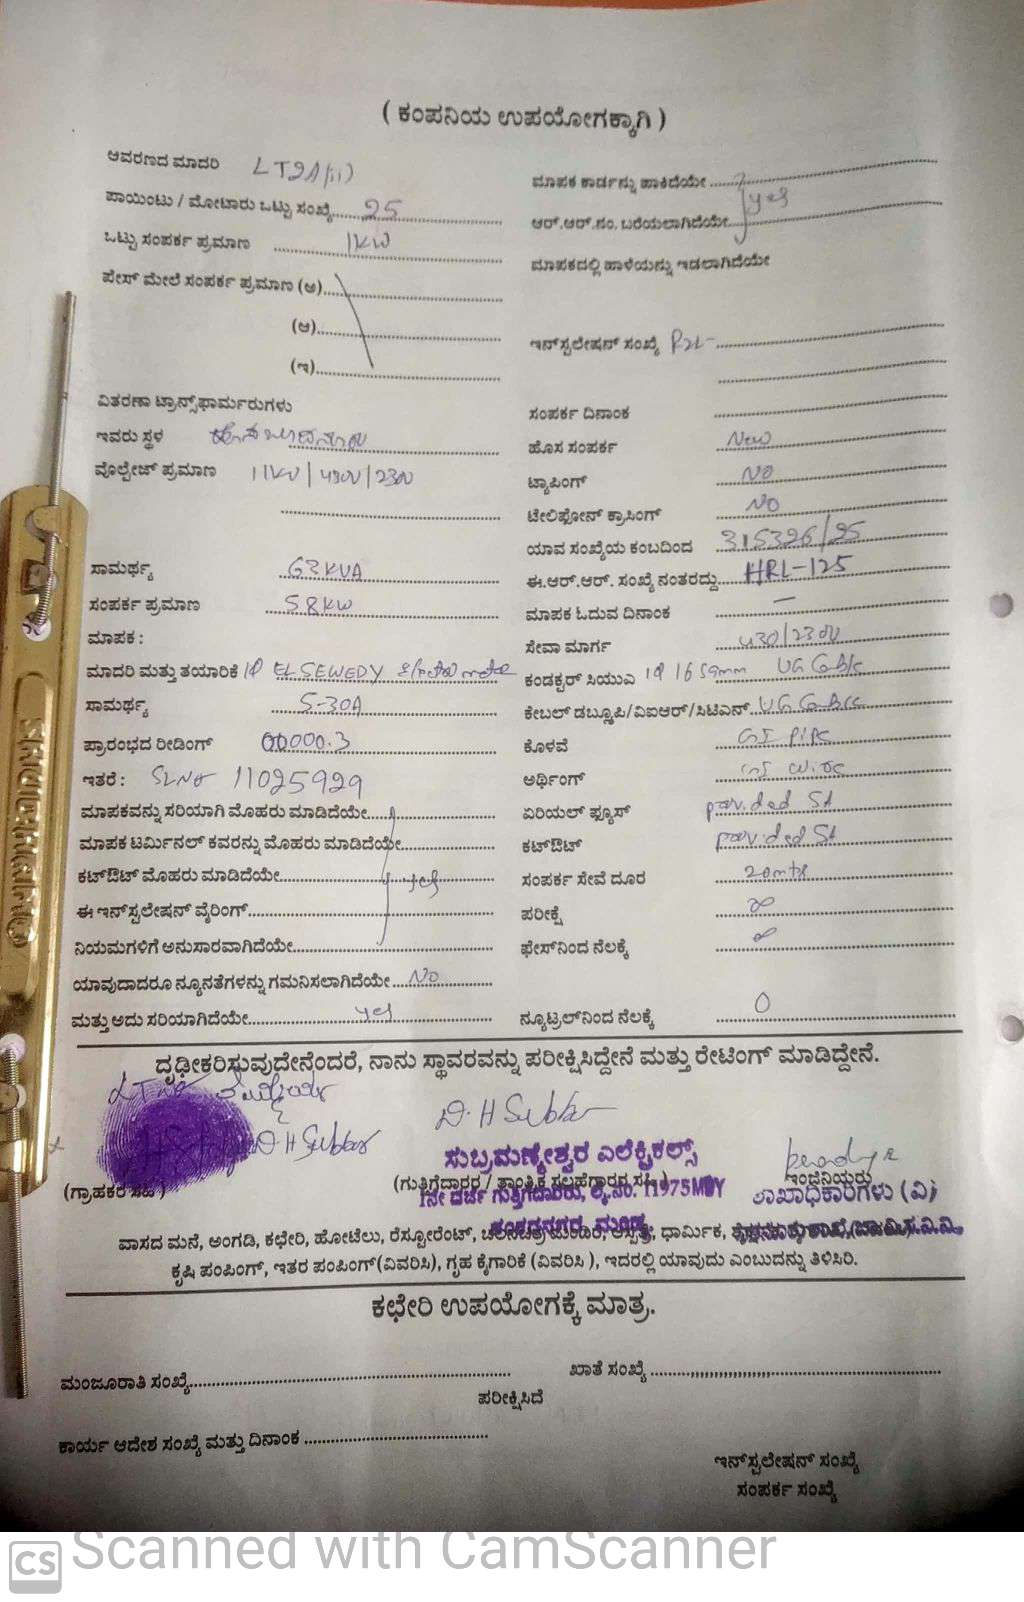 ( ಕಂಪನಿಯ ಉಪಯೋಗಕ್ಕಾಗಿ )
ಆವರಣದ ಮಾದರಿ LT2A(ii)
ಪಾಯಿಂಟು / ಮೋಟಾರು ಒಟ್ಟು ಸಂಖ್ಯೆ 25
ಒಟ್ಟು ಸಂಪರ್ಕ ಪ್ರಮಾಣ 1KW
ಪೇಸ್ ಮೇಲೆ ಸಂಪರ್ಕ ಪ್ರಮಾಣ (ಅ)
(ಆ)
(ಇ)
ವಿತರಣಾ ಟ್ರಾನ್ಸ್‌ಫಾರ್ಮರುಗಳು
ಇವರು ಸ್ಥಳ
ವೊಲ್ಟೇಜ್ ಪ್ರಮಾಣ 11KV/430V/230V
ಸಾಮರ್ಥ್ಯ 63KVA
ಸಂಪರ್ಕ ಪ್ರಮಾಣ 58KW
ಮಾಪಕ :
ಮಾದರಿ ಮತ್ತು ತಯಾರಿಕೆ 1Φ ELSEWEDY
ಸಾಮರ್ಥ್ಯ 5-30A
ಪ್ರಾರಂಭದ ರೀಡಿಂಗ್ 00000.3
ಇತರೆ : SLNo 11025929
ಮಾಪಕವನ್ನು ಸರಿಯಾಗಿ ಮೊಹರು ಮಾಡಿದೆಯೇ
ಮಾಪಕ ಟರ್ಮಿನಲ್ ಕವರನ್ನು ಮೊಹರು ಮಾಡಿದೆಯೇ
ಕಟ್‌ಔಟ್ ಮೊಹರು ಮಾಡಿದೆಯೇ yes
ಈ ಇನ್‌ಸ್ಟಲೇಷನ್ ವೈರಿಂಗ್
ನಿಯಮಗಳಿಗೆ ಅನುಸಾರವಾಗಿದೆಯೇ
ಯಾವುದಾದರೂ ನ್ಯೂನತೆಗಳನ್ನು ಗಮನಿಸಲಾಗಿದೆಯೇ No
ಮತ್ತು ಅದು ಸರಿಯಾಗಿದೆಯೇ yes
ಮಾಪಕ ಕಾರ್ಡನ್ನು ಹಾಕಿದೆಯೇ yes
ಆರ್.ಆರ್.ನಂ. ಬರೆಯಲಾಗಿದೆಯೇ
ಮಾಪಕದಲ್ಲಿ ಹಾಳೆಯನ್ನು ಇಡಲಾಗಿದೆಯೇ
ಇನ್‌ಸ್ಟಲೇಷನ್ ಸಂಖ್ಯೆ
ಸಂಪರ್ಕ ದಿನಾಂಕ
ಹೊಸ ಸಂಪರ್ಕ New
ಟ್ಯಾಪಿಂಗ್ NO
ಟೇಲಿಫೋನ್ ಕ್ರಾಸಿಂಗ್ NO
ಯಾವ ಸಂಖ್ಯೆಯ ಕಂಬದಿಂದ 315326/25
ಈ.ಆರ್.ಆರ್. ಸಂಖ್ಯೆ ನಂತರದ್ದು HRL-125
ಮಾಪಕ ಓದುವ ದಿನಾಂಕ —
ಸೇವಾ ಮಾರ್ಗ 430/230V
ಕಂಡಕ್ಟರ್ ಸಿಯುಎ 1Φ 16 sqmm UG Cable
ಕೇಬಲ್ ಡಬ್ಲೂಪಿ/ವಿಐಆರ್/ಸಿಟಿಎನ್ UG Cable
ಕೊಳವೆ GI PIPE
ಅರ್ಥಿಂಗ್ GI wire
ಏರಿಯಲ್ ಫ್ಯೂಸ್ provided St
ಕಟ್‌ಔಟ್ provided St
ಸಂಪರ್ಕ ಸೇವೆ ದೂರ 20mtr
ಪರೀಕ್ಷೆ ∞
ಫೇಸ್‌ನಿಂದ ನೆಲಕ್ಕೆ ∞
ನ್ಯೂಟ್ರಲ್‌ನಿಂದ ನೆಲಕ್ಕೆ 0
ದೃಢೀಕರಿಸುವುದೇನೆಂದರೆ, ನಾನು ಸ್ಥಾವರವನ್ನು ಪರೀಕ್ಷಿಸಿದ್ದೇನೆ ಮತ್ತು ರೇಟಿಂಗ್ ಮಾಡಿದ್ದೇನೆ.
D.H Subbar
D.H Subbar
ಸುಬ್ರಮಣ್ಯೇಶ್ವರ ಎಲೆಕ್ಟ್ರಿಕಲ್ಸ್
(ಗ್ರಾಹಕರ ಸಹಿ) (ಗುತ್ತಿಗೆದಾರರ / ತಾಂತ್ರಿಕ ಸಲಹೆಗಾರರ ಸಹಿ) ಇಂಜಿನಿಯರು
1ನೇ ದರ್ಜೆ ಗುತ್ತಿಗೆದಾರರು, ಲೈ.ನಂ. 11975MDY ಶಾಖಾಧಿಕಾರಿಗಳು (ವಿ)
ವಾಸದ ಮನೆ, ಅಂಗಡಿ, ಕಛೇರಿ, ಹೋಟೆಲು, ರೆಸ್ಟೋರೆಂಟ್, ಚಲನಚಿತ್ರ ಮಂದಿರ, ಆಸ್ಪತ್ರೆ, ಧಾರ್ಮಿಕ,
ಕೃಷಿ ಪಂಪಿಂಗ್, ಇತರ ಪಂಪಿಂಗ್(ವಿವರಿಸಿ), ಗೃಹ ಕೈಗಾರಿಕೆ (ವಿವರಿಸಿ ), ಇದರಲ್ಲಿ ಯಾವುದು ಎಂಬುದನ್ನು ತಿಳಿಸಿರಿ.
ಕಛೇರಿ ಉಪಯೋಗಕ್ಕೆ ಮಾತ್ರ.
ಮಂಜೂರಾತಿ ಸಂಖ್ಯೆ ಖಾತೆ ಸಂಖ್ಯೆ
ಪರೀಕ್ಷಿಸಿದೆ
ಕಾರ್ಯ ಆದೇಶ ಸಂಖ್ಯೆ ಮತ್ತು ದಿನಾಂಕ
ಇನ್‌ಸ್ಟಲೇಷನ್ ಸಂಖ್ಯೆ
ಸಂಪರ್ಕ ಸಂಖ್ಯೆ
CS Scanned with CamScanner